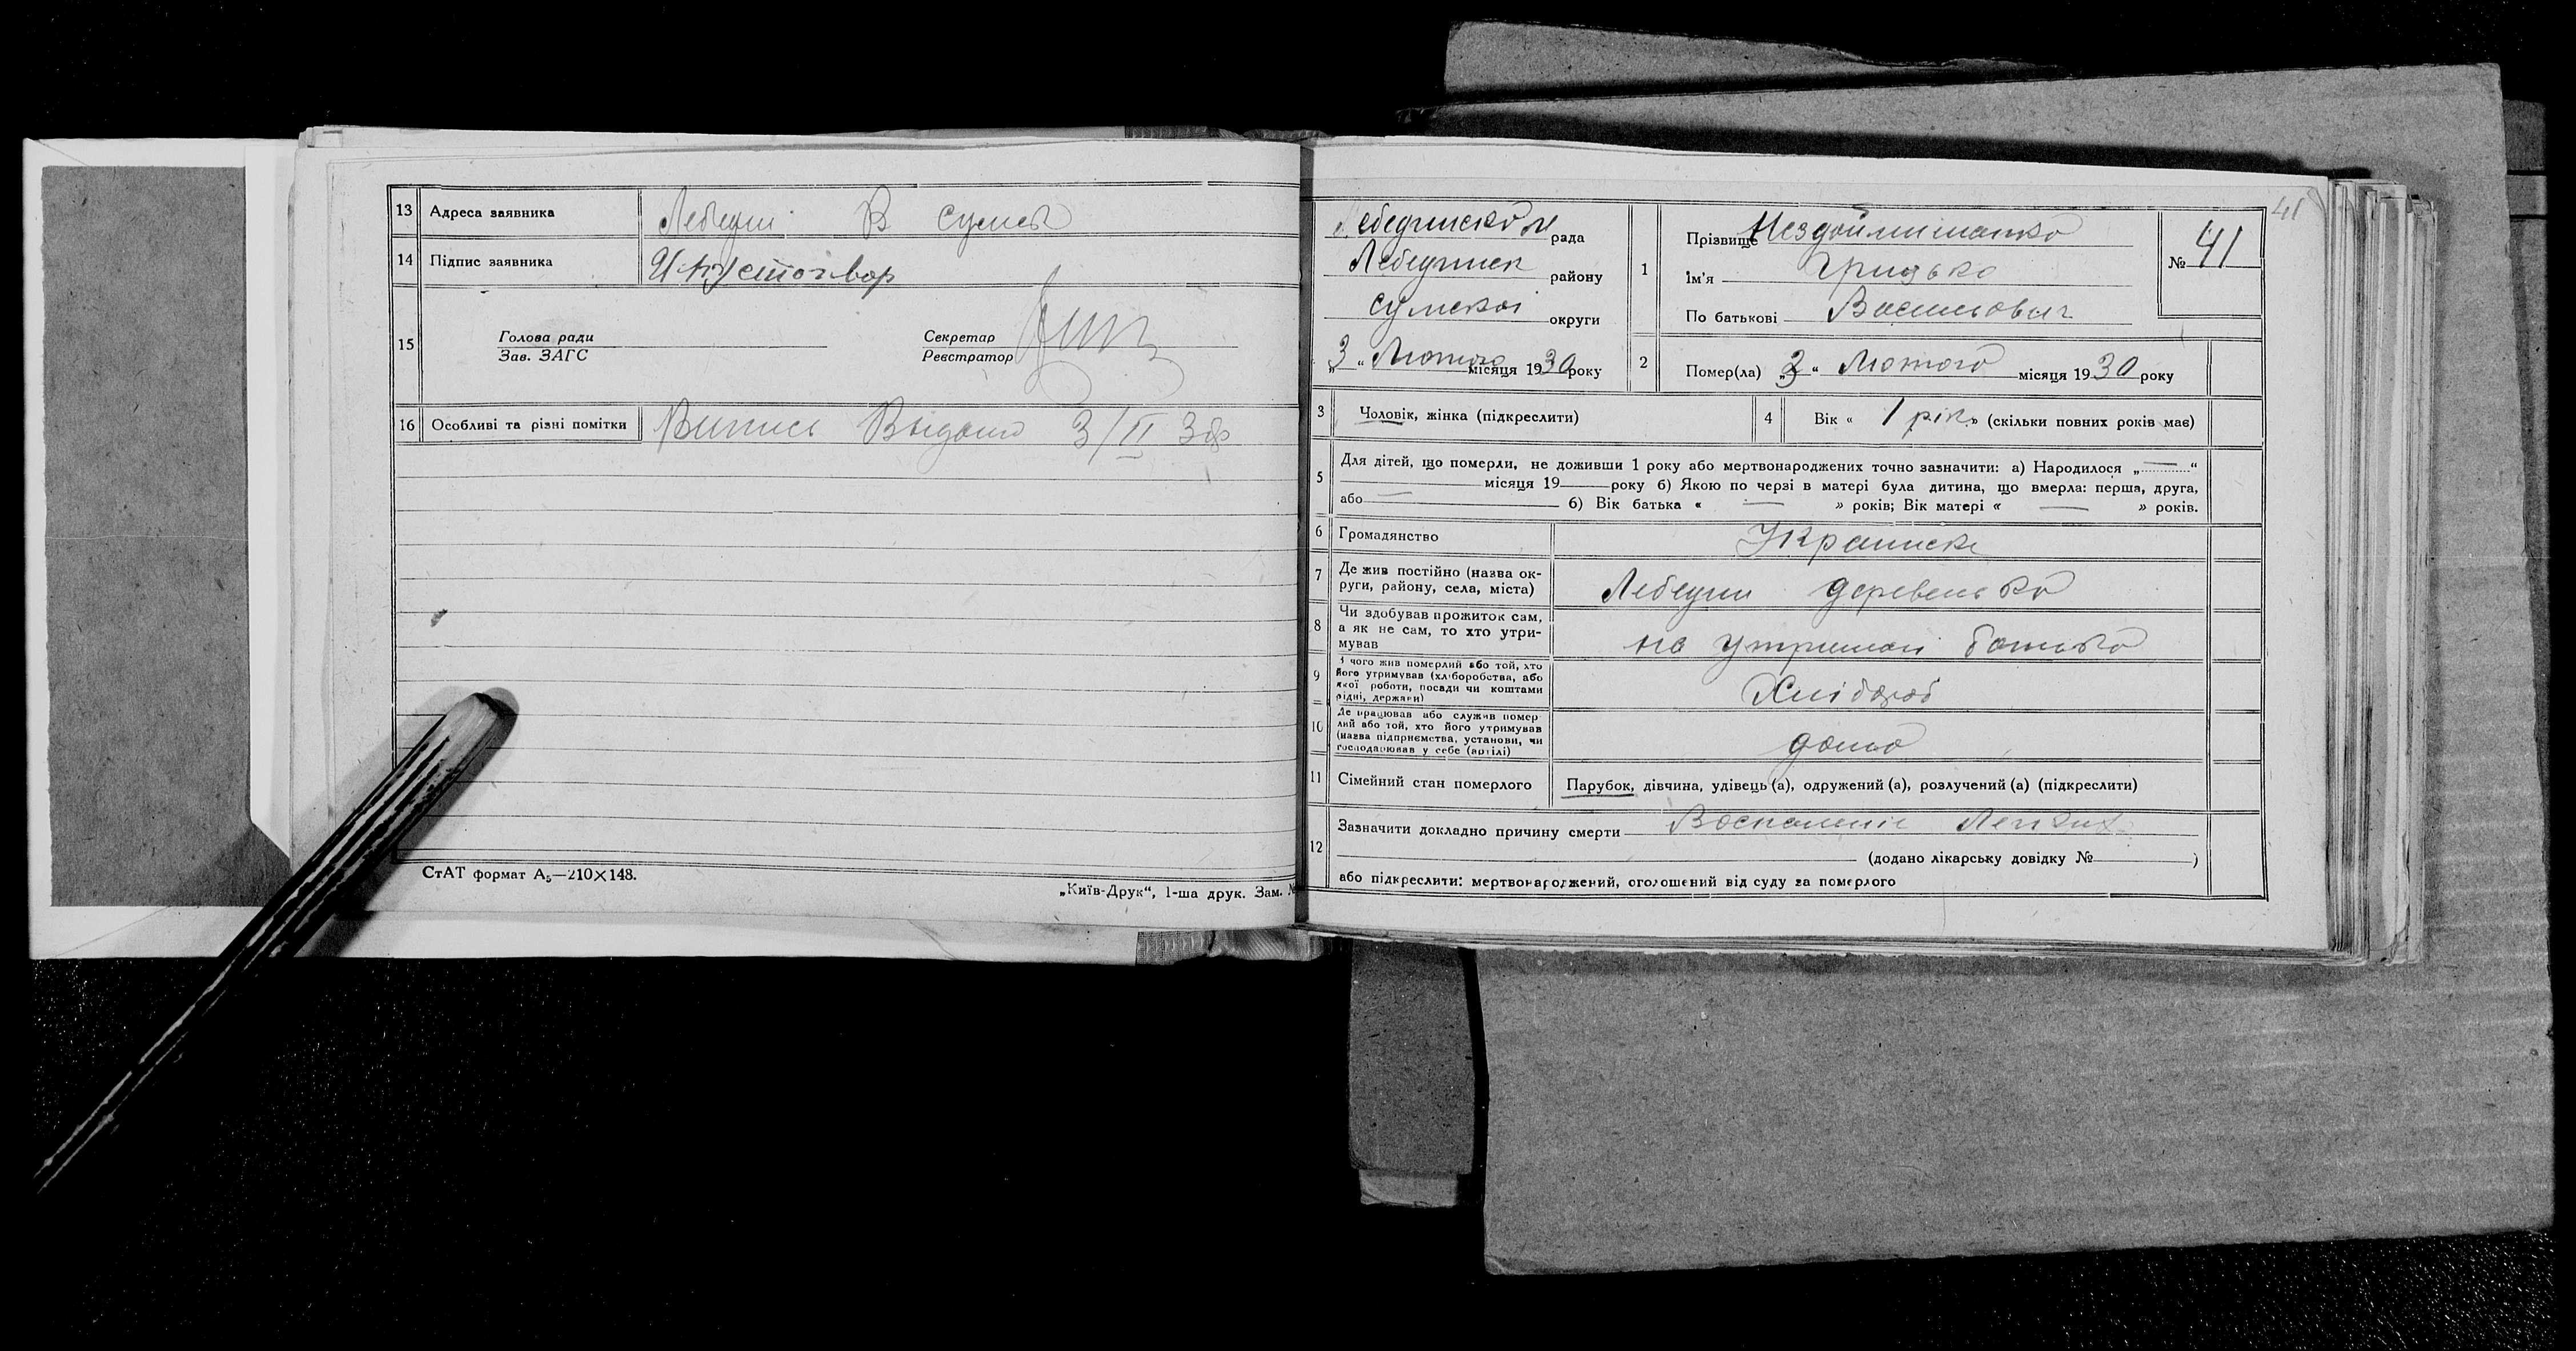 13 Адреса заявника Лебедин В Сумска
14 Підпис заявника
15 Голова ради Секретар
Зав. ЗАГС Реєстратор
16 Особливі та різні помітки Випись Выдано 3/II 30р
СтАТ формат А5—210×148.
„Київ-Друк“, 1-ша друк. Зам. №
41
Лебединской рада
Лебединск району
Сумскоі округи
„3“ Лютого місяця 1930 року
1 Прізвище Нездойминашко
Ім'я Грицько
По батькові Васильович
№ 41
2 Помер(ла) „3“ Лютого місяця 1930 року
3 Чоловік, жінка (підкреслити)
4 Вік « 1 рік » (скільки повних років має)
5 Для дітей, що померли, не доживши 1 року або мертвонароджених точно зазначити: а) Народилося „—“
місяця 19—року б) Якою по черзі в матері була дитина, що вмерла: перша, друга,
або — 6) Вік батька « — » років; Вік матері « — » років.
6 Громадянство Украинск
7 Де жив постійно (назва ок-
руги, району, села, міста) Лебедин деревенька
8 Чи здобував прожиток сам,
а як не сам, то хто утри-
мував на утримані батька
9 З чого жив померлий або той, хто
його утримував (хліборобства, або
якої роботи, посади чи коштами
рідні, держави) Хлібороб
10 Де працював або служив помер
лий або той, хто його утримував
(назва підприємства, установи, чи
господарював у себе (артілі) дома
11 Сімейний стан померлого Парубок, дівчина, удівець (а), одружений (а), розлучений (а) (підкреслити)
12 Зазначити докладно причину смерти Воспаление Легких
(додано лікарську довідку № )
або підкреслити: мертвонароджений, оголошений від суду за померлого